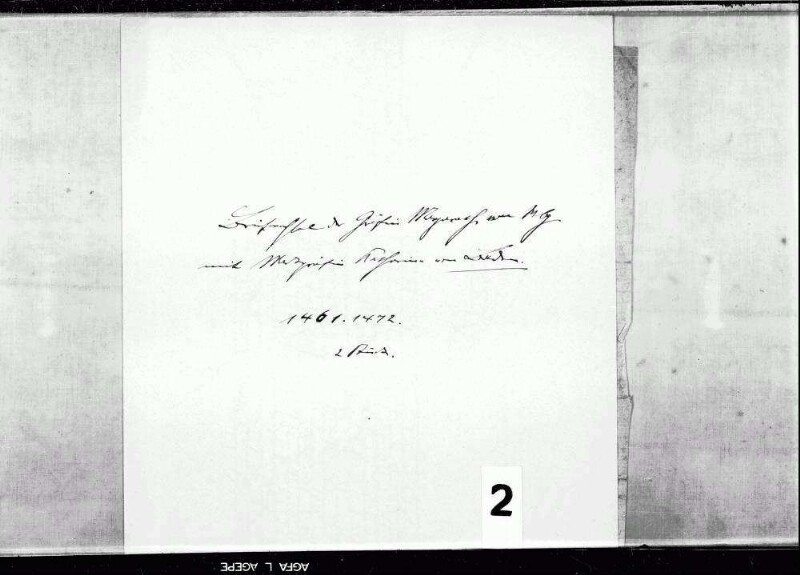 Briefwechsel der Gräfin Margareth von
mit Markgräfin Katharina von Baden.
1461. 1472.
2 Stück.
2
AGFA L AGEPE